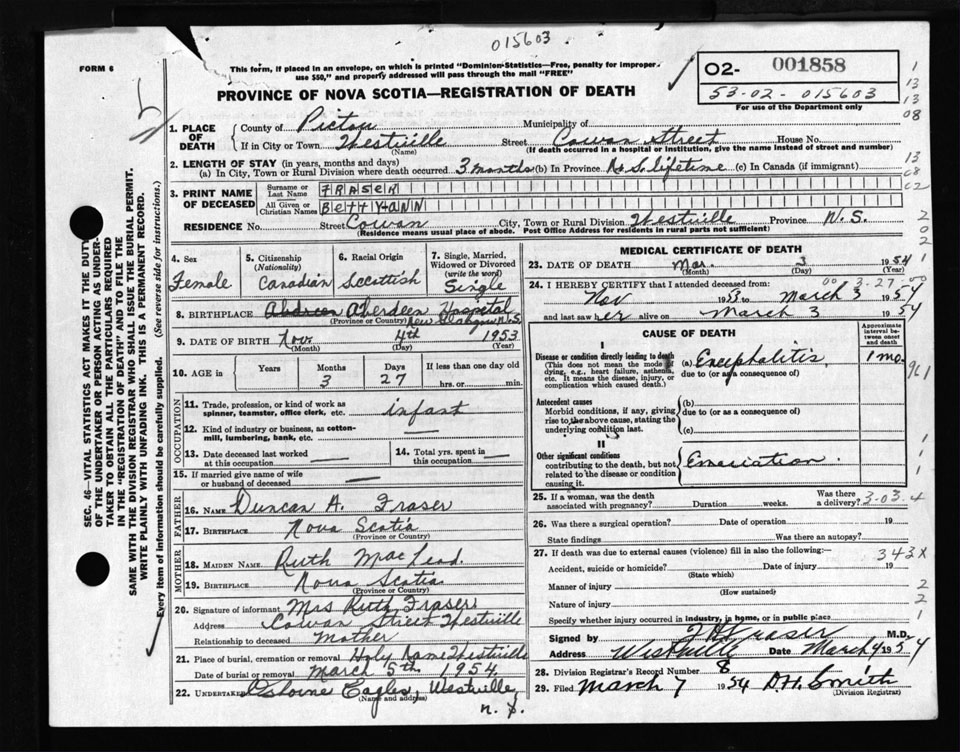 015603
FORM 6
This form, if placed in an envelope, on which is printed "Dominion Statistics—Free, penalty for improper
use $50," and properly addressed will pass through the mail "FREE"
PROVINCE OF NOVA SCOTIA—REGISTRATION OF DEATH
02- 001858
53-02-015603
For use of the Department only
1. PLACE OF DEATH
County of Pictou Municipality of
If in City or Town Westville Street Cowan Street House No.
(Name) (If death occurred in a hospital or institution, give the name instead of street and number)
2. LENGTH OF STAY (in years, months and days)
(a) In City, Town or Rural Division where death occurred 3 months (b) In Province N.S. lifetime (c) In Canada (if immigrant)
3. PRINT NAME OF DECEASED
Surname or Last Name FRASER
All Given or Christian Names BETTY ANN
RESIDENCE No. Street Cowan City, Town or Rural Division Westville Province N.S.
(Residence means usual place of abode. Post Office Address for residents in rural parts not sufficient)
4. Sex Female
5. Citizenship (Nationality) Canadian
6. Racial Origin Scottish
7. Single, Married, Widowed or Divorced (write the word) Single
8. BIRTHPLACE Aberdeen Hospital
(Province or Country) New Glasgow N.S.
9. DATE OF BIRTH Nov 4th 1953
(Month) (Day) (Year)
10. AGE in Years Months 3 Days 27 If less than one day old
hrs. or min.
OCCUPATION
11. Trade, profession, or kind of work as spinner, teamster, office clerk, etc. infant
12. Kind of industry or business, as cotton-mill, lumbering, bank, etc. —
13. Date deceased last worked at this occupation —
14. Total yrs. spent in this occupation —
15. If married give name of wife or husband of deceased —
FATHER
16. NAME Duncan A. Fraser
17. BIRTHPLACE Nova Scotia
(Province or Country)
MOTHER
18. MAIDEN NAME Ruth MacLeod.
19. BIRTHPLACE Nova Scotia
(Province or Country)
20. Signature of informant Mrs Ruth Fraser
Address Cowan Street Westville
Relationship to deceased Mother
21. Place of burial, cremation or removal Holy Name Westville
Date of burial or removal March 5th 1954.
22. Undertaker Osborne Eagles, Westville,
(Name and address)
N.S.
MEDICAL CERTIFICATE OF DEATH
23. DATE OF DEATH Mar. 3 1954
(Month) (Day) (Year)
24. I HEREBY CERTIFY that I attended deceased from:
Nov 1953 to March 3 1954
and last saw her alive on March 3 1954
CAUSE OF DEATH
Approximate interval between onset and death
I
Disease or condition directly leading to death
(This does not mean the mode of dying, e.g., heart failure, asthenia, etc. It means the disease, injury, or complication which caused death.)
(a) Encephalitis 1 mo.
due to (or as a consequence of)
Antecedent causes
Morbid conditions, if any, giving rise to the above cause, stating the underlying condition last.
(b)
due to (or as a consequence of)
(c)
II
Other significant conditions
contributing to the death, but not related to the disease or condition causing it.
Emaciation.
25. If a woman, was the death associated with pregnancy? Duration weeks. Was there a delivery?
3-03.4
26. Was there a surgical operation? Date of operation 19
State findings Was there an autopsy?
27. If death was due to external causes (violence) fill in also the following:—
343X
Accident, suicide or homicide? Date of injury 19
(State which)
Manner of injury
(How sustained)
Nature of injury
Specify whether injury occurred in industry, in home, or in public place
Signed by Fraser M.D.
Address Westville Date March 4 1954
28. Division Registrar's Record Number 8
29. Filed March 7 1954 D.H. Smith
(Division Registrar)
SEC. 46—VITAL STATISTICS ACT MAKES IT THE DUTY
OF THE UNDERTAKER OR PERSON ACTING AS UNDER-
TAKER TO OBTAIN ALL THE PARTICULARS REQUIRED
IN THE "REGISTRATION OF DEATH" AND TO FILE THE
SAME WITH THE DIVISION REGISTRAR WHO SHALL ISSUE THE BURIAL PERMIT.
WRITE PLAINLY WITH UNFADING INK. THIS IS A PERMANENT RECORD.
Every item of information should be carefully supplied. (See reverse side for instructions.)